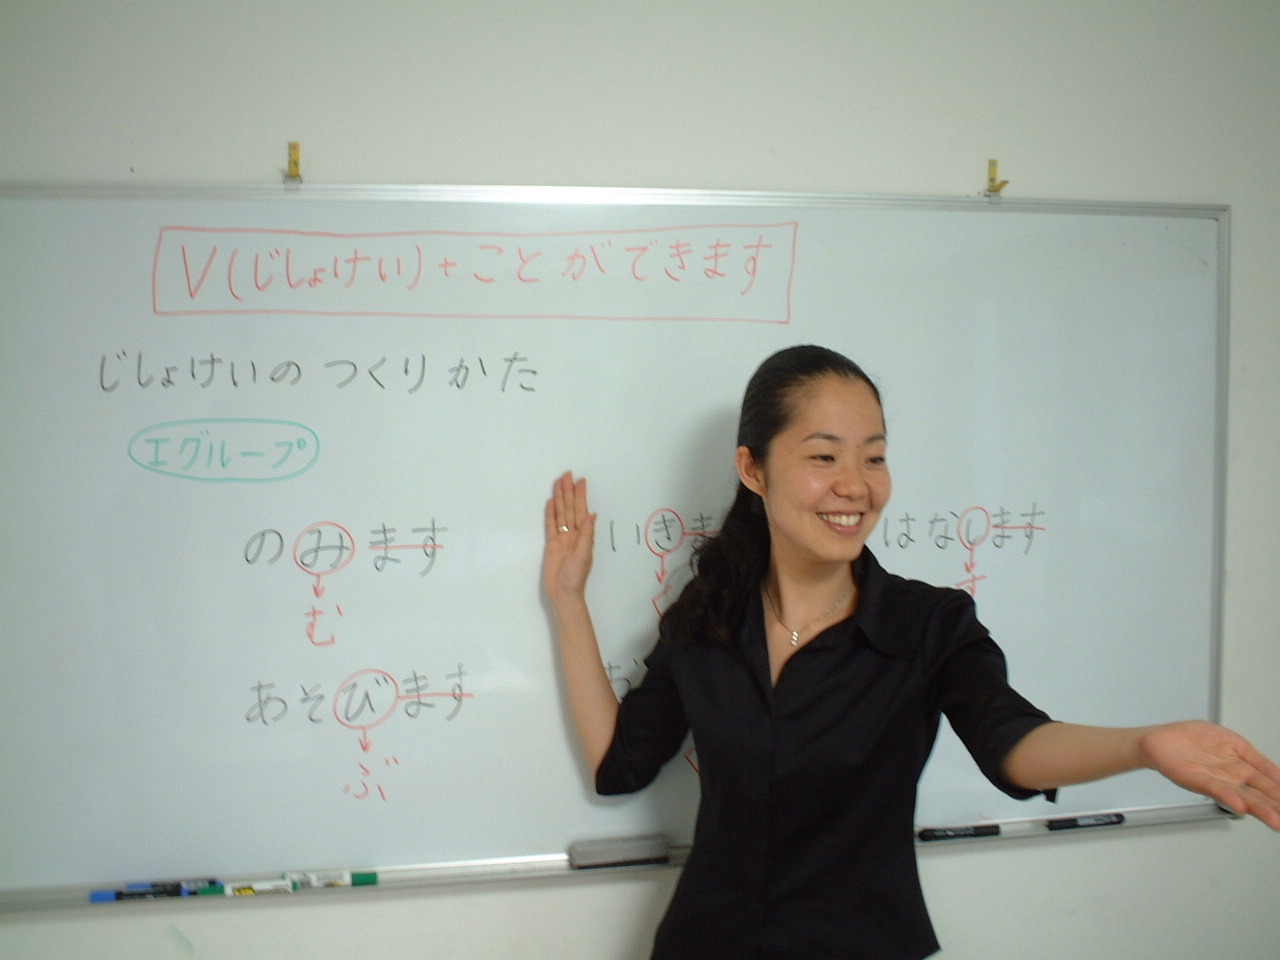 V(じしょけい)+ことができます
じしょけいの つくりかた
Iグループ
のみます いきま はなします
む く す
あそびます
ぶ